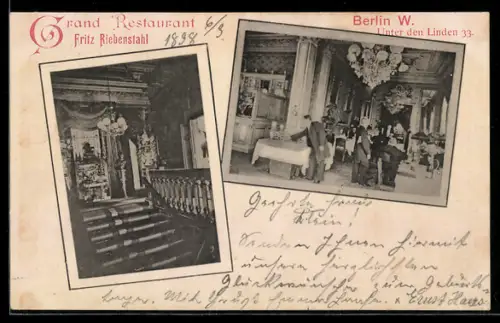 Grand Restaurant
Fritz Riebenstahl
6/3
1898
Berlin W.
Unter den Linden 33.
Geehrte Frau
Klein!
Senden Ihnen hiermit
unsere herzlichsten
Glückwünsche zum Geburts-
tage. Mit Gruß
Ernst Hans